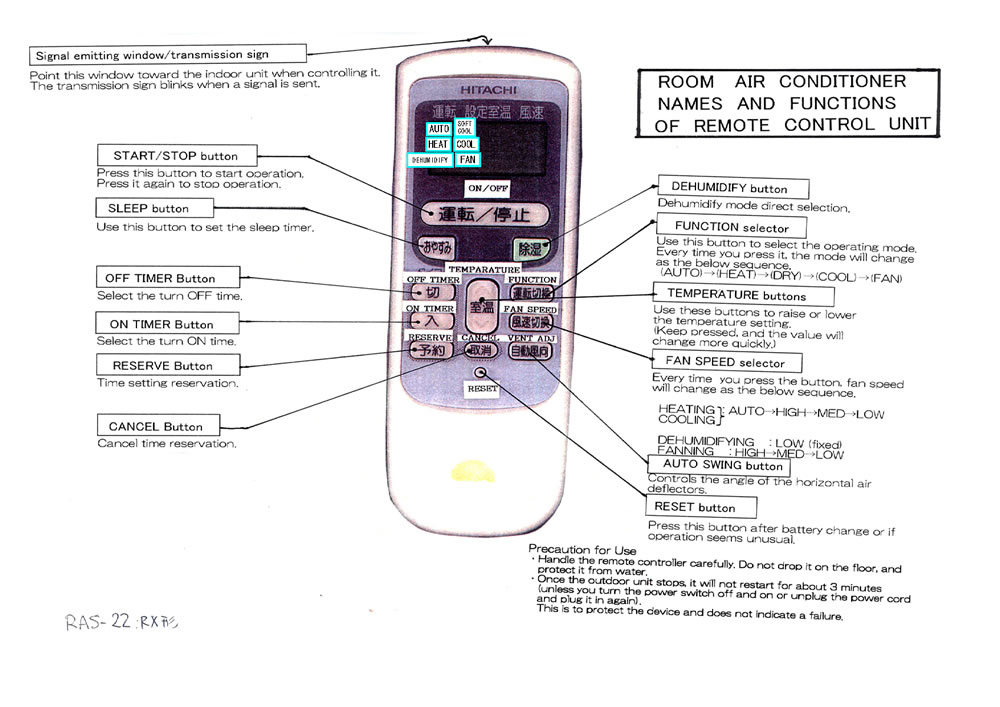 Signal emitting window/transmission sign
Point this window toward the indoor unit when controlling it.
The transmission sign blinks when a signal is sent.
ROOM AIR CONDITIONER
NAMES AND FUNCTIONS
OF REMOTE CONTROL UNIT
START/STOP button
Press this button to start operation.
Press it again to stop operation.
SLEEP button
Use this button to set the sleep timer.
OFF TIMER Button
Select the turn OFF time.
ON TIMER Button
Select the turn ON time.
RESERVE Button
Time setting reservation.
CANCEL Button
Cancel time reservation.
HITACHI
運転 設定室温 風速
AUTO SOFT COOL
HEAT COOL
DEHUMIDIFY FAN
ON/OFF
運転/停止
おやすみ
除湿
TEMPARATURE
OFF TIMER
FUNCTION
切
室温
運転切換
ON TIMER
FAN SPEED
入
風速切換
RESERVE
CANCEL
VENT ADJ
予約
取消
自動風向
RESET
DEHUMIDIFY button
Dehumidify mode direct selection.
FUNCTION selector
Use this button to select the operating mode.
Every time you press it, the mode will change
as the below sequence.
(AUTO)→(HEAT)→(DRY)→(COOL)→(FAN)
TEMPERATURE buttons
Use these buttons to raise or lower
the temperature setting.
(Keep pressed, and the value will
change more quickly.)
FAN SPEED selector
Every time you press the button, fan speed
will change as the below sequence.
HEATING
COOLING } : AUTO→HIGH→MED→LOW
DEHUMIDIFYING : LOW (fixed)
FANNING : HIGH→MED→LOW
AUTO SWING button
Controls the angle of the horizontal air
deflectors.
RESET button
Press this button after battery change or if
operation seems unusual.
Precaution for Use
・Handle the remote controller carefully. Do not drop it on the floor, and
protect it from water.
・Once the outdoor unit stops, it will not restart for about 3 minutes
(unless you turn the power switch off and on or unplug the power cord
and plug it in again).
This is to protect the device and does not indicate a failure.
RAS-22:RX形